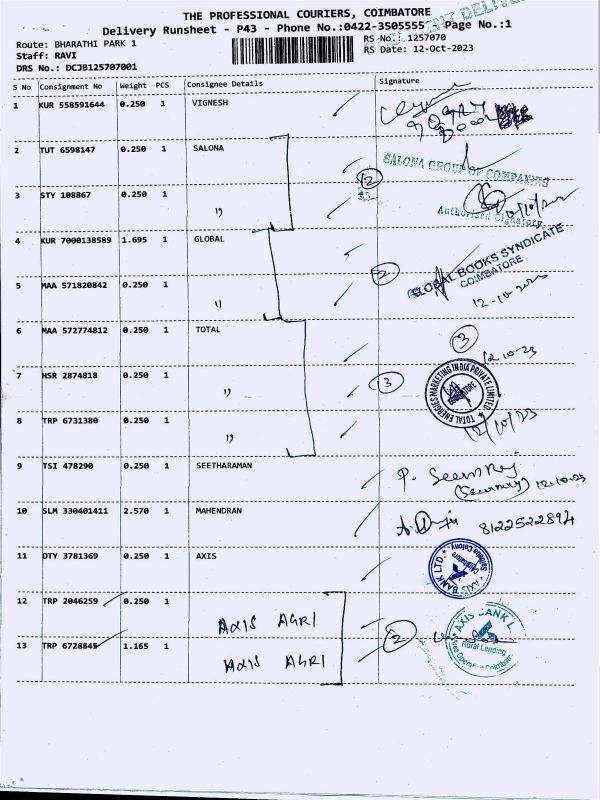 THE PROFESSIONAL COURIERS, COIMBATORE
Delivery Runsheet - P43 - Phone No.:0422-3505555 - Page No.:1
Route: BHARATHI PARK 1 RS No.: 1257070
Staff: RAVI RS Date: 12-Oct-2023
DRS No.: DCJB125707001
S No Consignment No Weight PCS Consignee Details Signature
1 KUR 558591644 0.250 1 VIGNESH
2 TUT 6598147 0.250 1 SALONA
SALONA GROUP OF COMPANIES
12
3 STY 108867 0.250 1 "
Authorised Signatory
4 KUR 7000138589 1.695 1 GLOBAL
GLOBAL BOOKS SYNDICATE
COIMBATORE
2
5 MAA 571820842 0.250 1 "
6 MAA 572774812 0.250 1 TOTAL
3
12.10.23
7 HSR 2874818 0.250 1 "
3
TOTAL ENERGIES MARKETING INDIA PRIVATE LIMITED
COIMBATORE
8 TRP 6731380 0.250 1 "
12/10/23
9 TSI 478290 0.250 1 SEETHARAMAN
(Security) 12.10.23
10 SLM 330401411 2.570 1 MAHENDRAN
8122522894
11 DTY 3781369 0.250 1 AXIS
AXIS BANK LTD.
Coimbatore
12 TRP 2046259 0.250 1 AXIS AGRI
AXIS BANK L
2
Rural Lending
13 TRP 6728845 1.165 1 AXIS AGRI